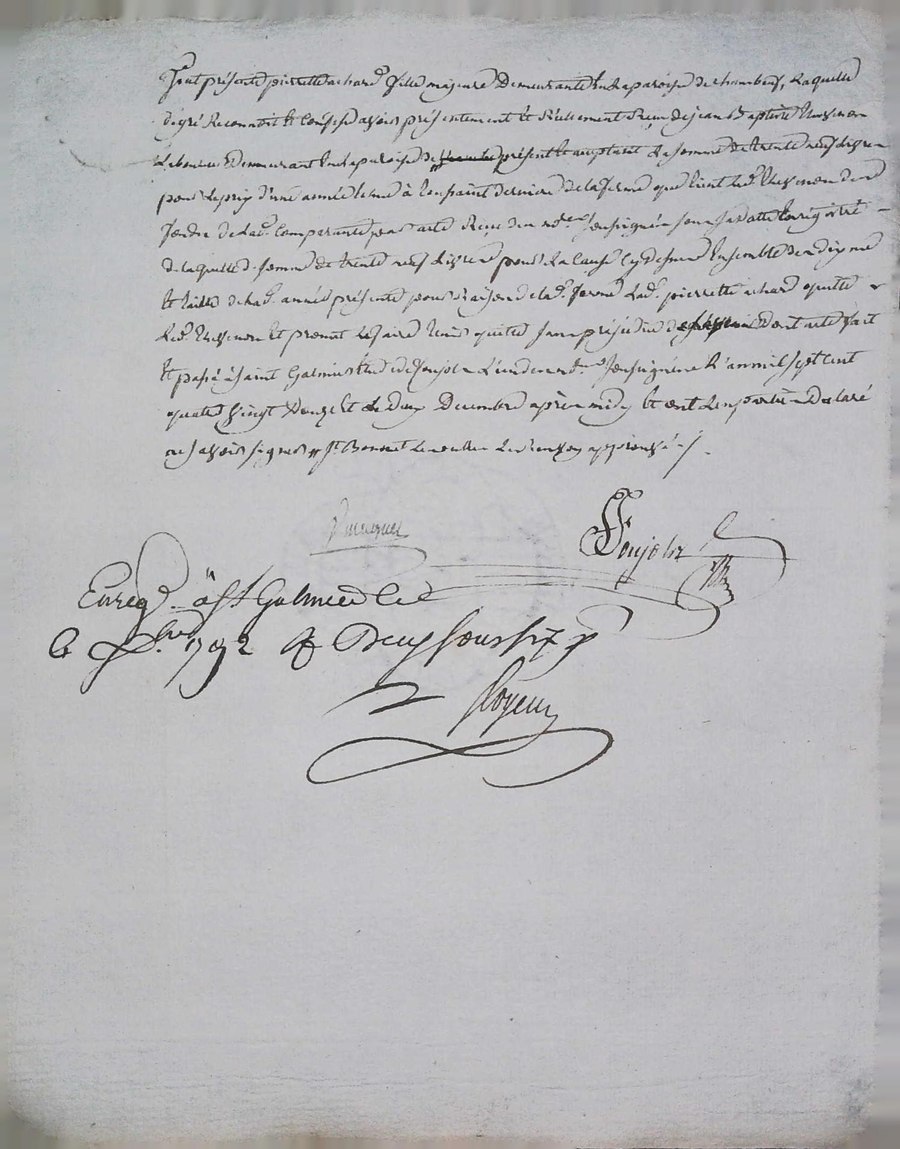 Fut présente pierrette achard fille majeure Demeurante En La paroisse de chambeuf, Laquelle
de gré Reconnoit Et Confesse avoir présentement Et Réellement Reçu de jean Baptiste
Laboureur Demeurant En La paroisse de présent Et acceptant La somme de trente neuf Livres
pour Le prix d'une année Echue à Toussaint derniere de La ferme que tient led.
fondre de Lad. Comparante par acte Reçu du no.re soussigné sous sa datte Enrégistré
de laquelle d. somme de trente neuf Livres pour La Cause Cy dessus Ensemble de
Et taille de Lad. année présente pour Raison de lad. ferme Lad. pierrette achard quitte
Led. Et promet Le faire tenir quitte sans préjudice dont acte fait
Et passé à saint Galmier Etude de Soujols Lieu de not.re soussigné L'an mil sept cent
quatre Vingt Douze Et Le Deux Decembre après midy Et ont Les parties Declaré
ne sçavoir signer St. Bonnet approuvé
Soujols
Enreg.é à St Galmier Le
Xbre 1792 R Deux sous six
Royeux